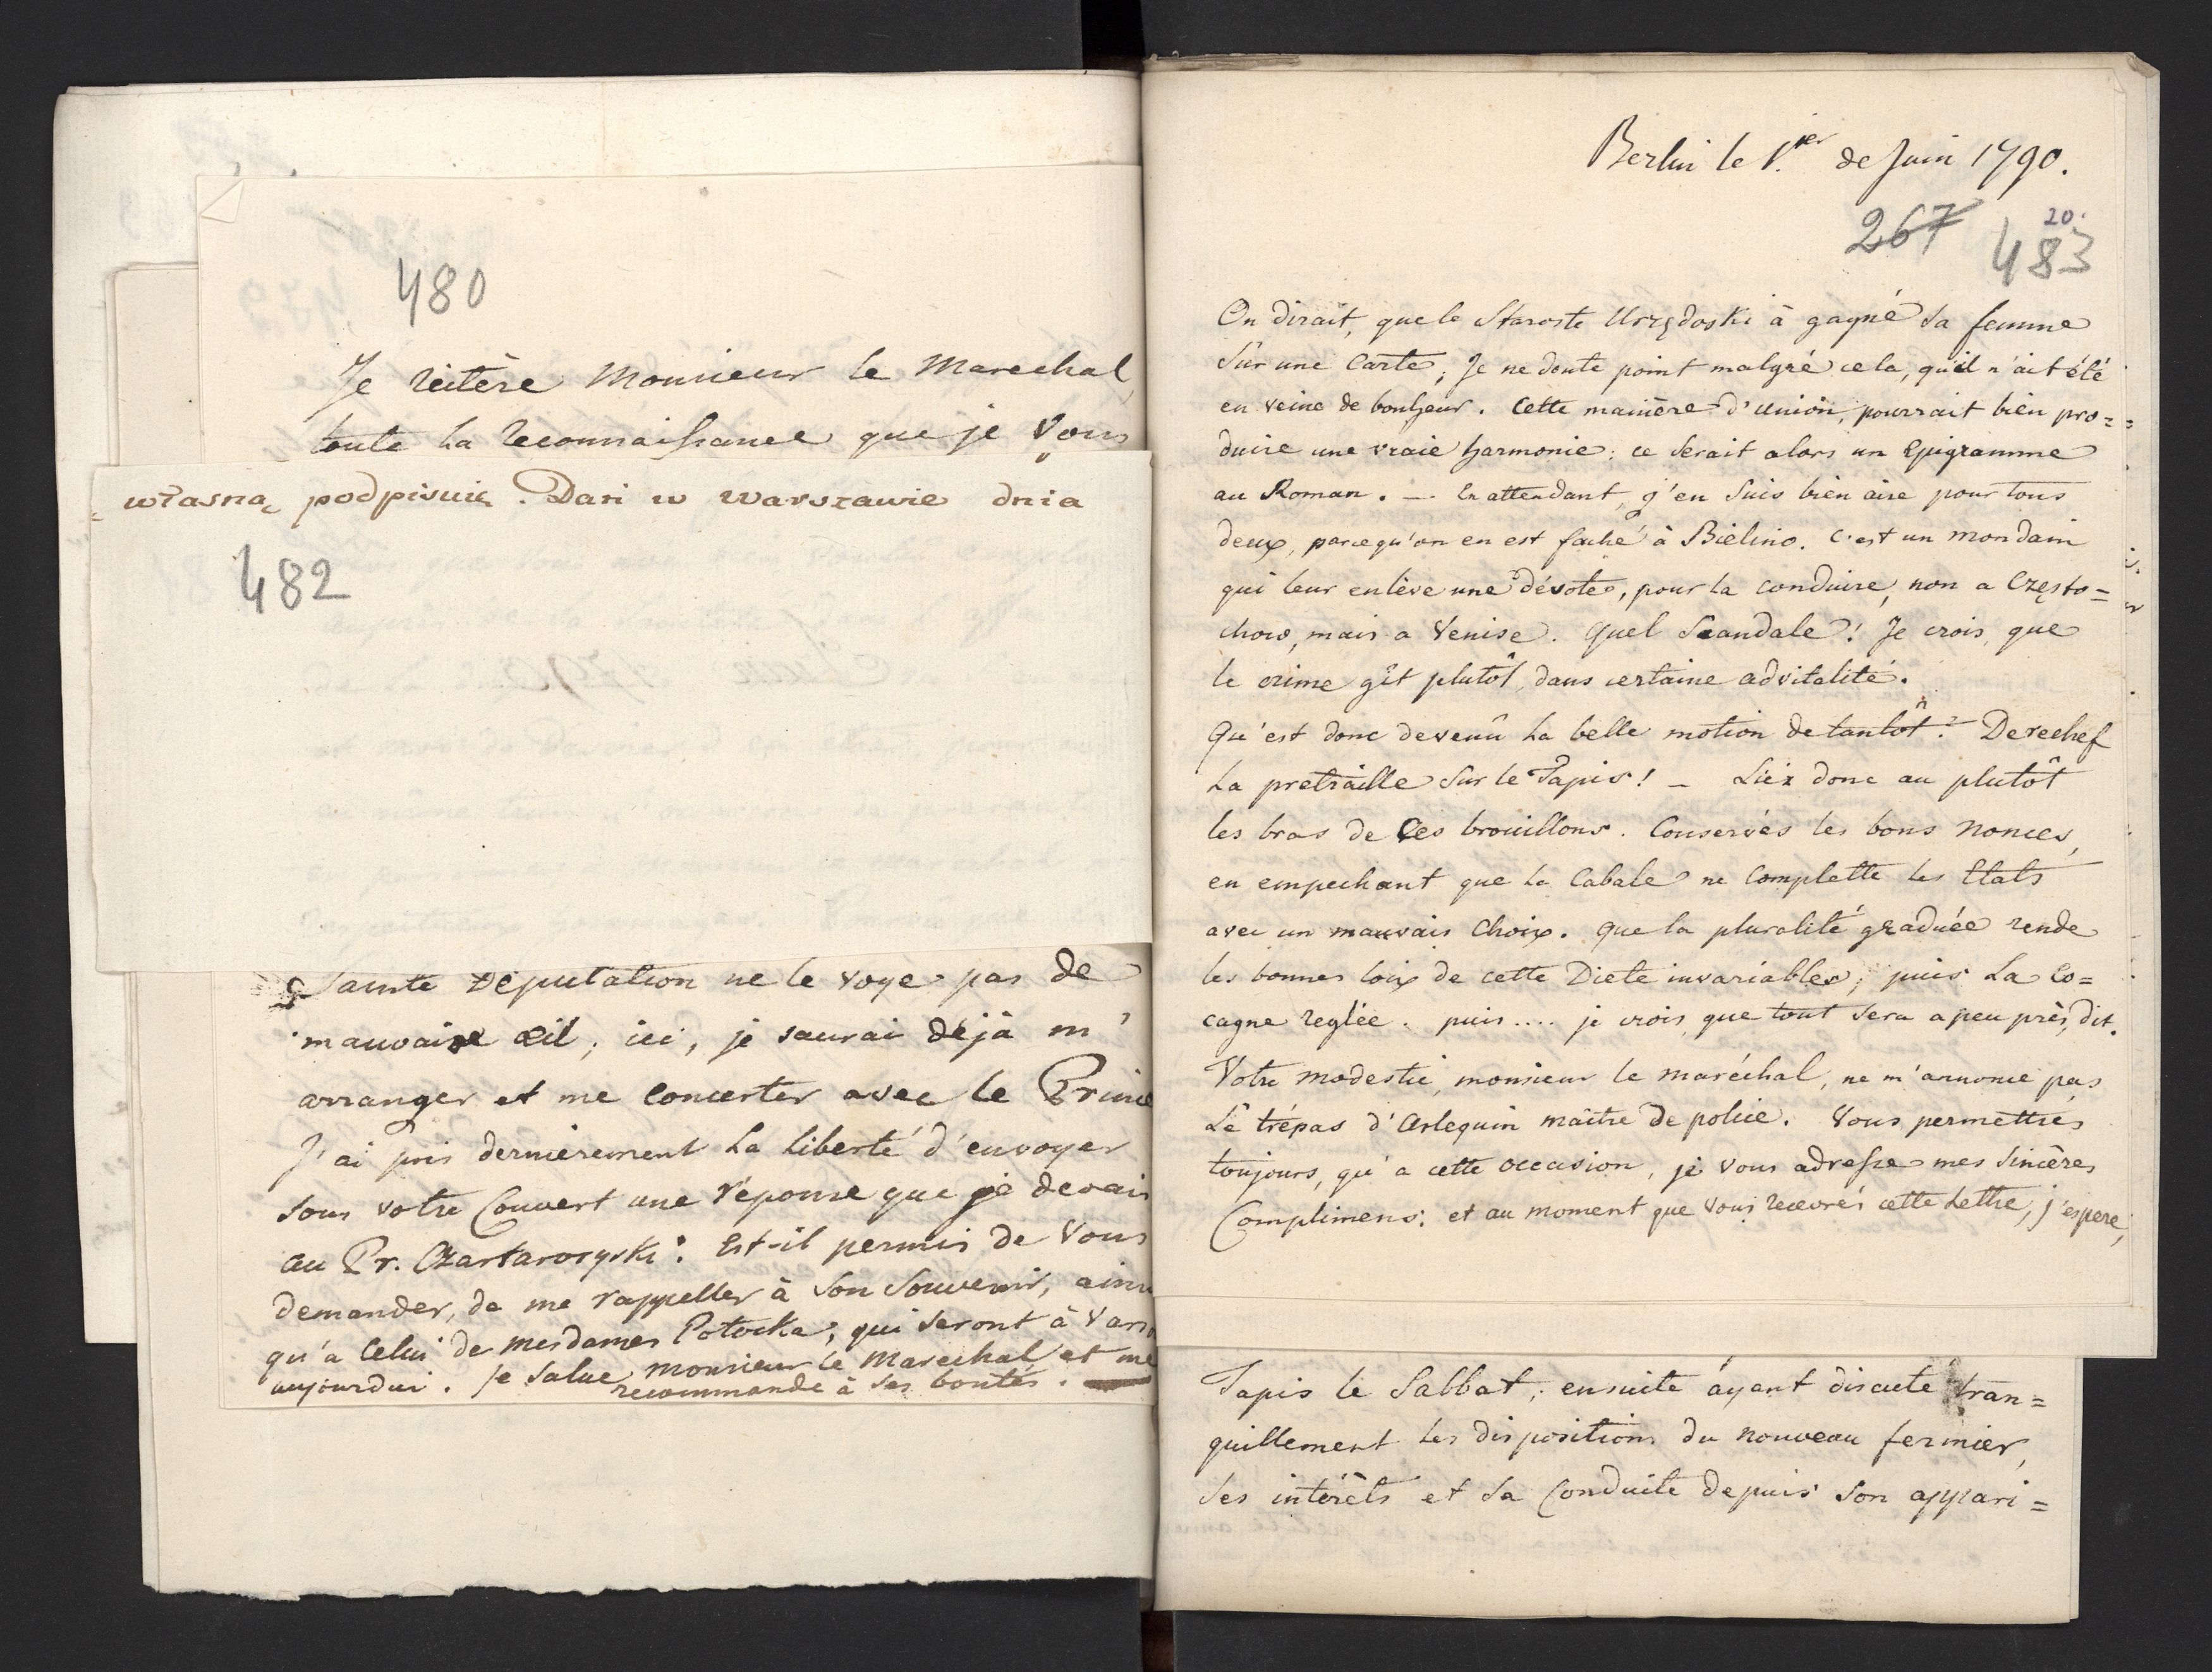 480
Je réitère Monsieur le Marechal
toute la reconnaissance que je Vous
własną podpisuię. Dan w Warszawie dnia
482
Sainte Députation ne le voye pas de
mauvaise œil; ici, je saurai déjà m'
arranger et me concerter avec le Prince
J'ai pris dernièrement la liberté d'envoyer
sous votre Couvert une réponse que je devais
au Pr. Czartoryski. Est-il permis de Vous
demander, de me rappeller à Son Souvenir, ainsi
qu'a Celui de mesdames Potocka, qui seront à Vars
aujourdui. Je Salue monsieur le Marechal et me
recommande à ses bontés.
Berlin le 1.ier de Juin 1790.
20.
267 483
On dirait, que le Staroste Urzędoski à gagné sa femme
sur une Carte; Je ne doute point malgré cela, qu'il n'ait été
en veine de bonheur. Cette manière d'union, pourrait bien pro=
duire une vraie harmonie; ce serait alors un Epigramme
au Roman. — En attendant, j'en suis bien aise pour tous
deux, parcequ'on en est faché à Bielino. C'est un mondain
qui leur enlève une dévote, pour la conduire, non a Często=
chow, mais a Venise. Quel Scandale! Je crois, que
le crime gît plutôt, dans certaine advitalité.
Qu'est donc devenû la belle motion de tantôt? Derechef
la pretraille sur le Tapis! — Liéz donc au plutôt
les bras de ces brouillons. Conservés les bons nonces,
en empechant que la Cabale ne Complette les Etats
avec un mauvais Choix. Que la pluralité graduée rende
les bonnes loix de cette Diete invariables; puis la Co=
cagne reglée. puis.... je crois, que tout sera a peu près, dit.
Votre modestie, monsieur le maréchal, ne m'annonce pas
Le trépas d'Arlequin maître de police. Vous permettrés
toujours, qu'a cette occasion, je vous adresse mes Sincères
Complimens; et au moment que vous recevrés cette Lettre, j'espere,
Tapis le Sabbat; ensuite ayant discuté tran=
quillement les dispositions du nouveau fermier,
ses intérêts et sa Conduite depuis son appari=